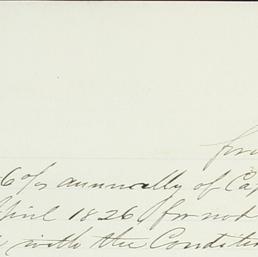 for
6 o/o annually of Cap
April 1826 for not
with the Condition